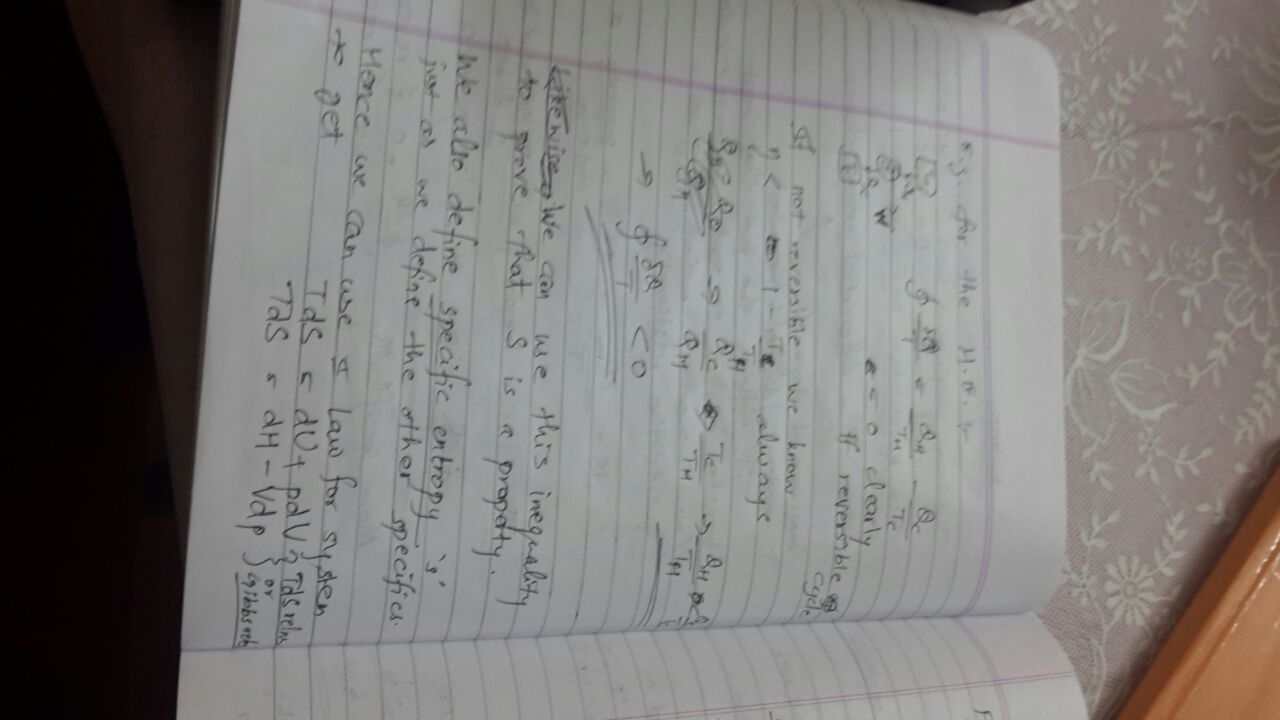 e.g. for the H.E. :-
∮ δQ/T = Q_H/T_H - Q_C/T_C
= 0 clearly
W
if reversible cycle
If not reversible we know
η < 1 - T_C/T_H always
→ Q_C/Q_H T_C/T_H → Q_H/T_H
→ ∮ δQ/T < 0
Likewise We can use this inequality
to prove that S is a property.
We also define specific entropy 's'
just as we define the other specifics.
Hence we can use I Law for system
to get
TdS = dU + pdV } TdS relns
TdS = dH - Vdp } or Gibbs reln